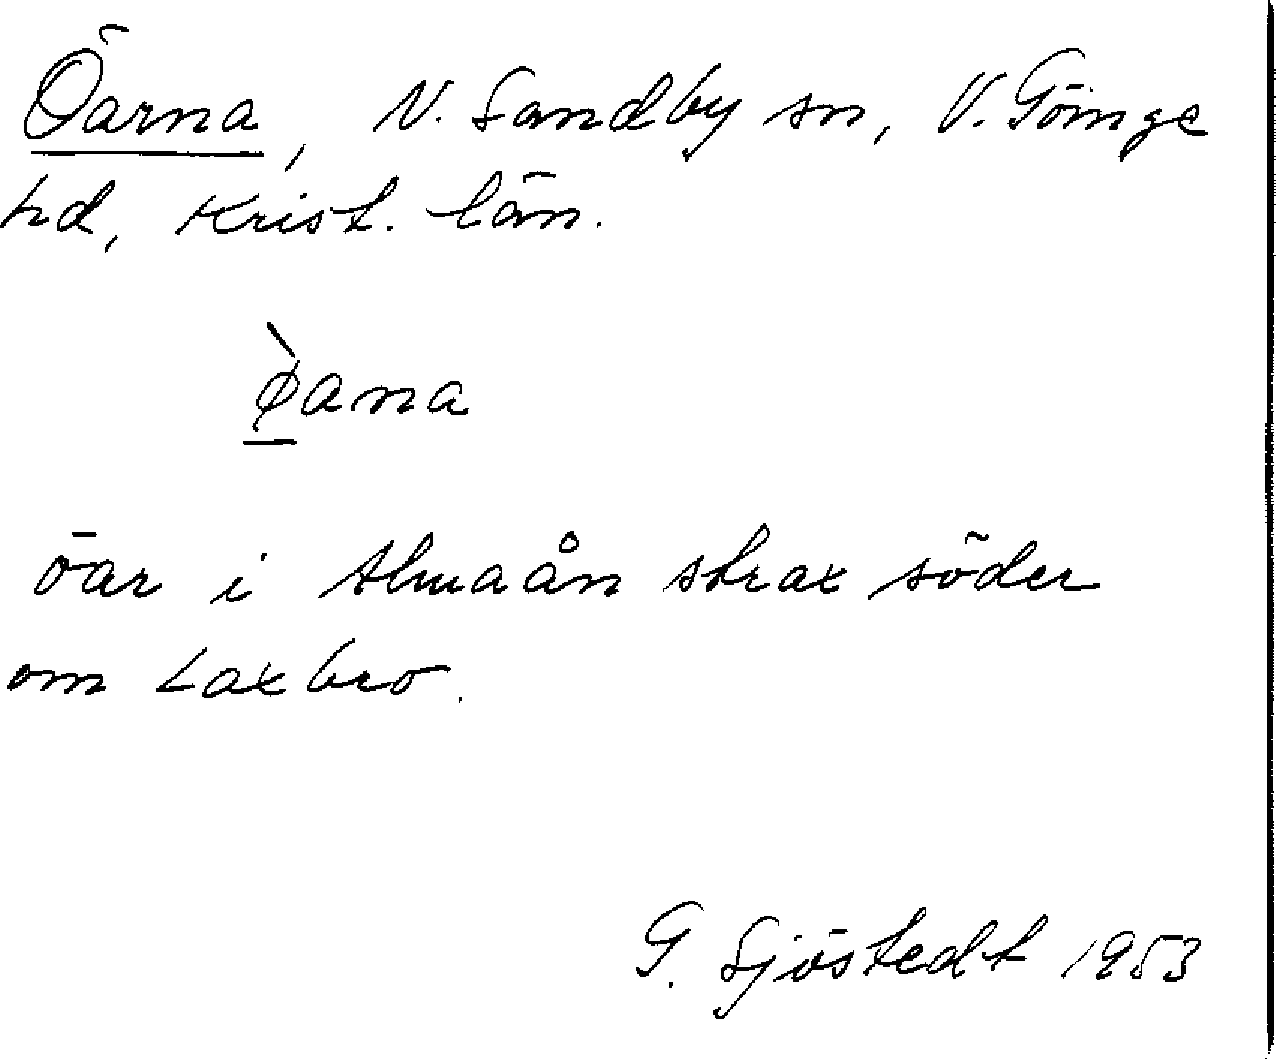 Öarna, N. Sandby sn, V. Göinge
hd, Krist. län.
ø̱̀ana
öar i Almaån strax söder
om Laxbro.
G. Sjöstedt 1953